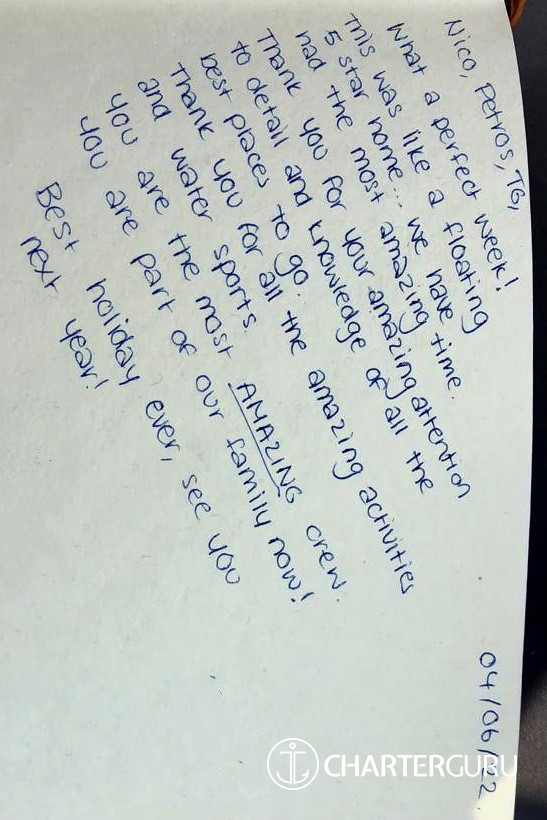 04/06/22
Nico, Petros, TG,
What a perfect week!
This was like a floating
5 star home... we have
had the most amazing time.
Thank you for your amazing attention
to detail and knowledge of all the
best places to go.
Thank you for all the amazing activities
and water sports.
You are the most AMAZING crew.
You are part of our family now!
Best holiday ever, see you
next year!
CHARTERGURU